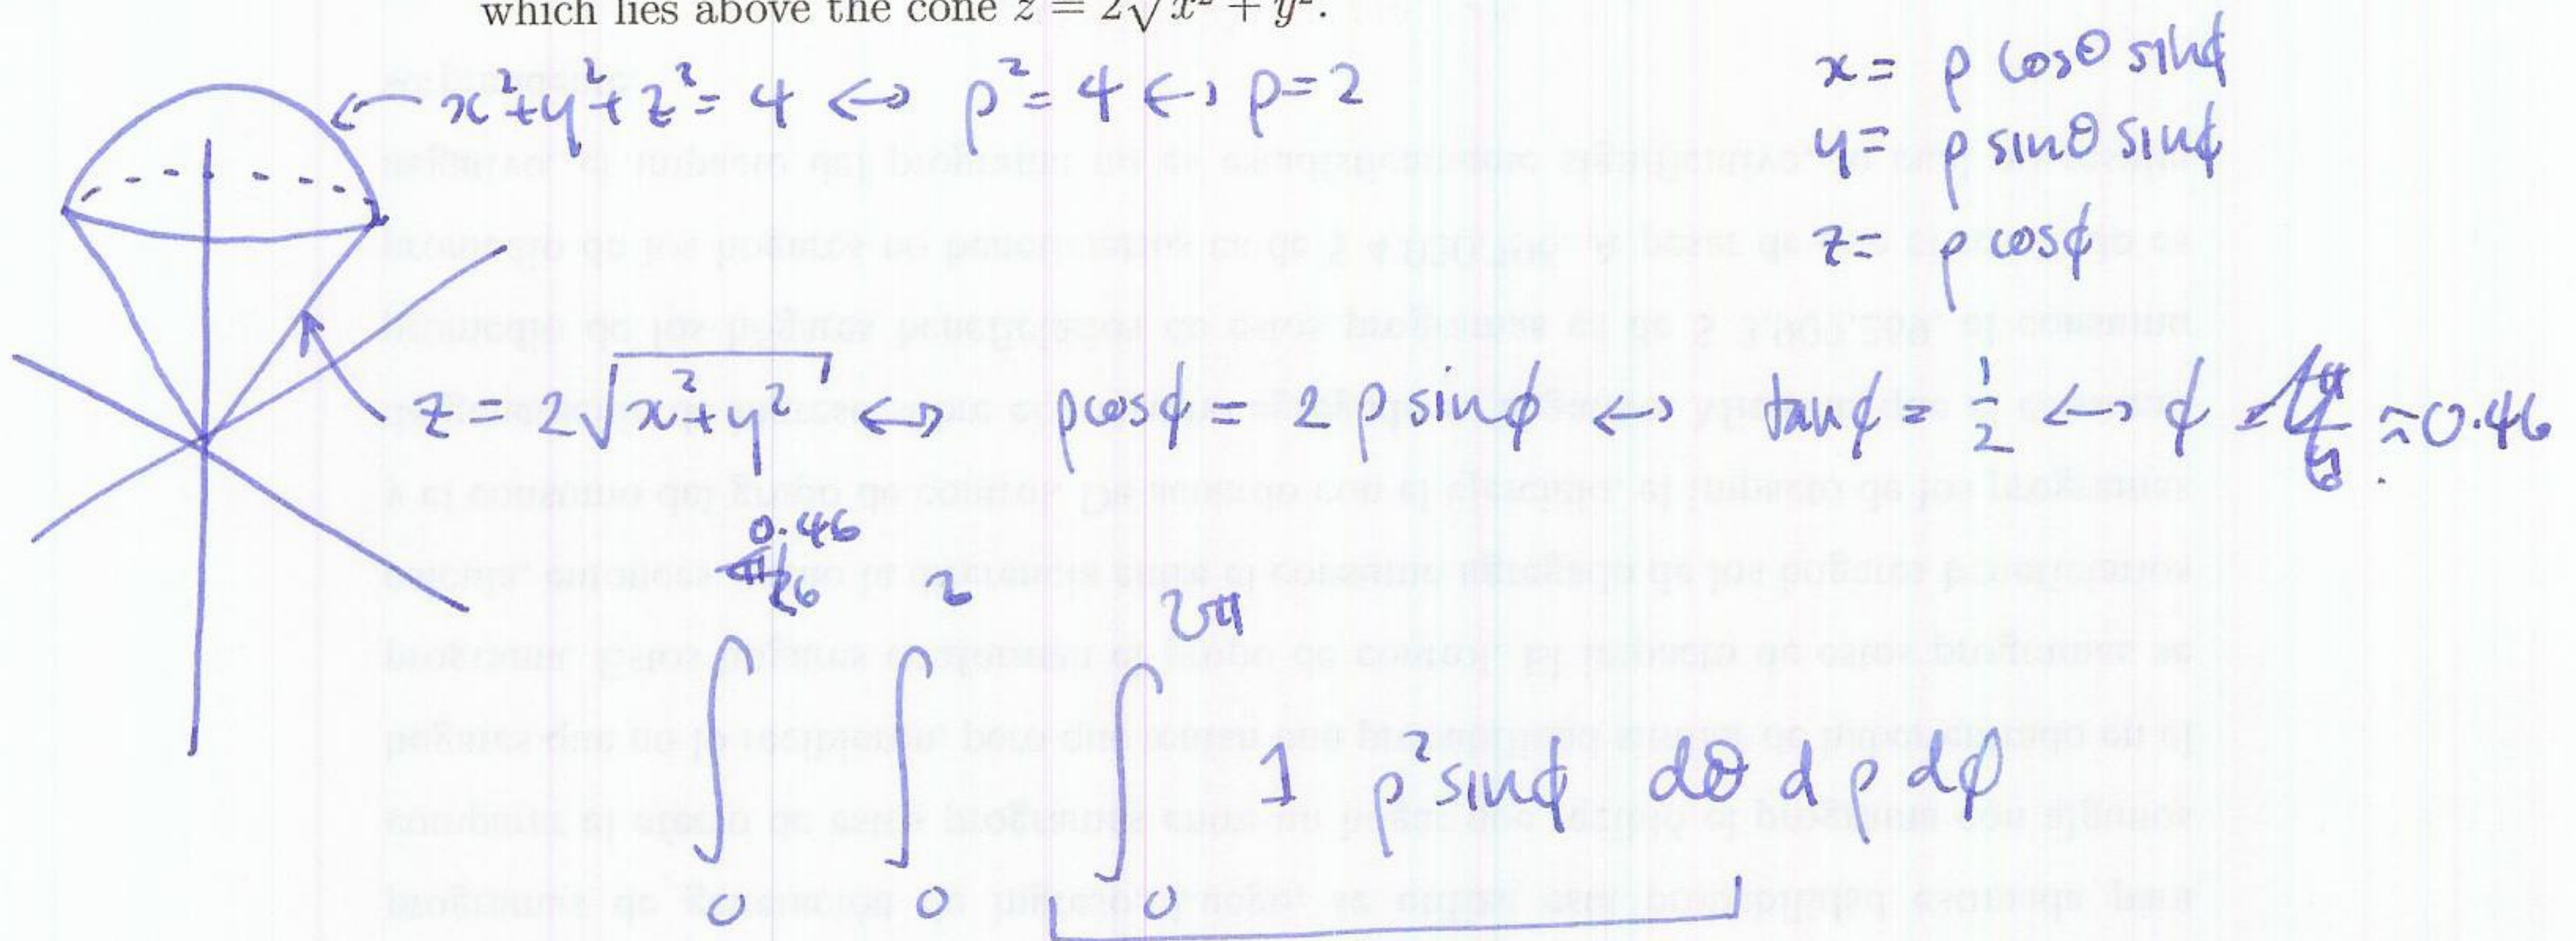 which lies above the cone z = 2√x² + y².
x² + y² + z² = 4 ↔ ρ² = 4 ↔ ρ = 2
x = ρ cosθ sinϕ
y = ρ sinθ sinϕ
z = ρ cosϕ
z = 2√x² + y² ↔ ρcosϕ = 2ρ sinϕ ↔ tanϕ = 1/2 ↔ ϕ = ≈ 0.46
0.46
2
2π
∫ ∫ ∫ 1 ρ² sinϕ dθ dρ dϕ
0 0 0